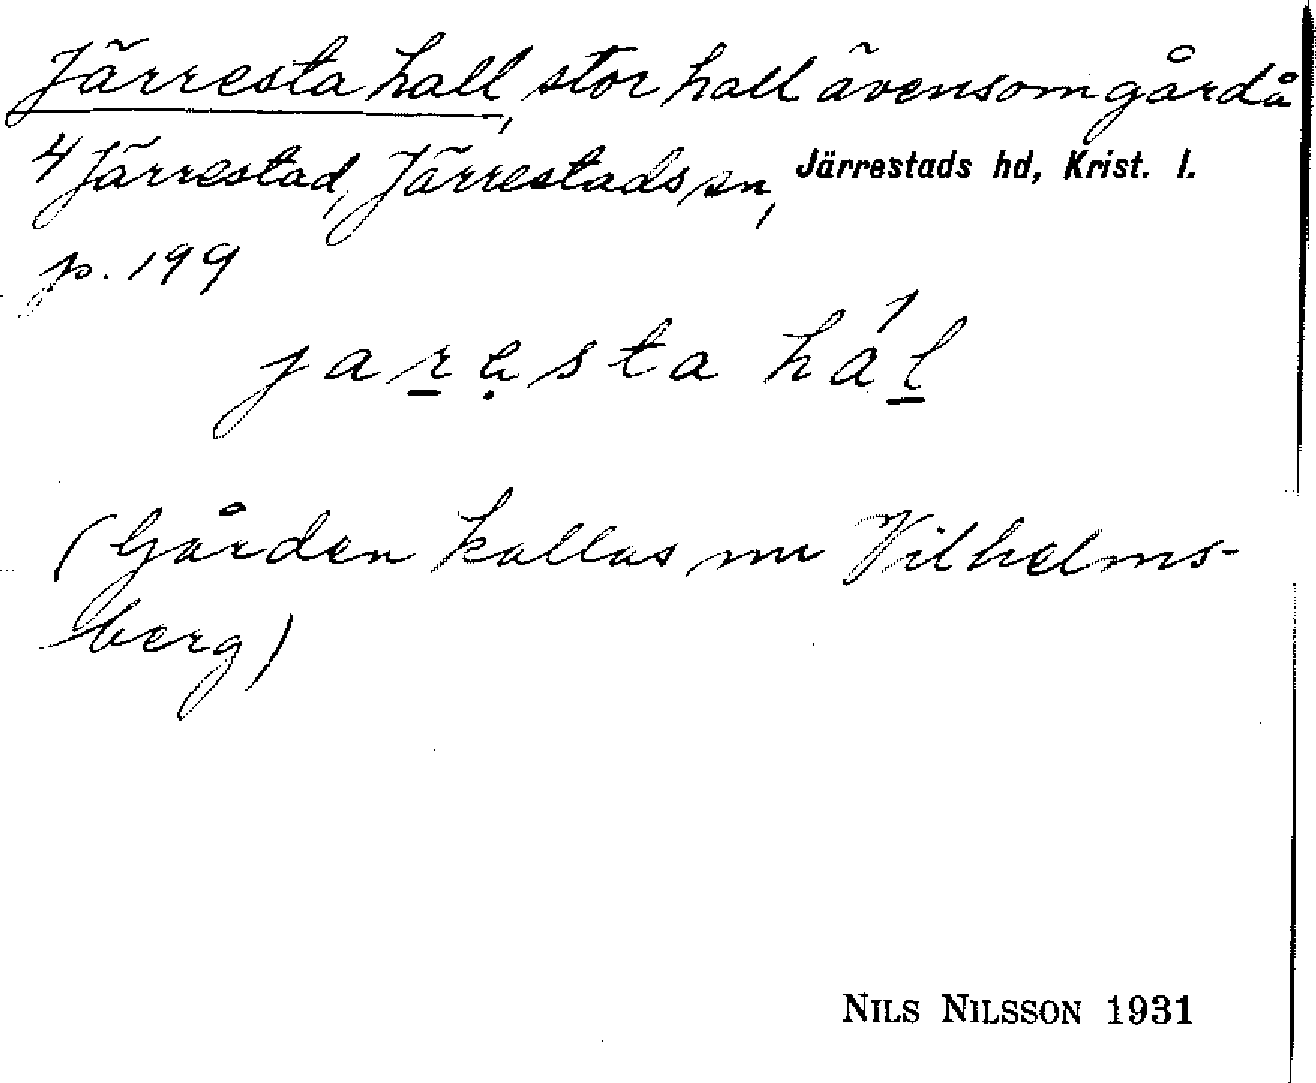 Järresta hall, stor hall ävensom gård å
4 Järrestad, Järrestads sn, Järrestads hd, Krist. l.
p. 199
jar̲ẹsta hál̲
(Gården kallas nu Vilhelms-
berg)
NILS NILSSON 1931